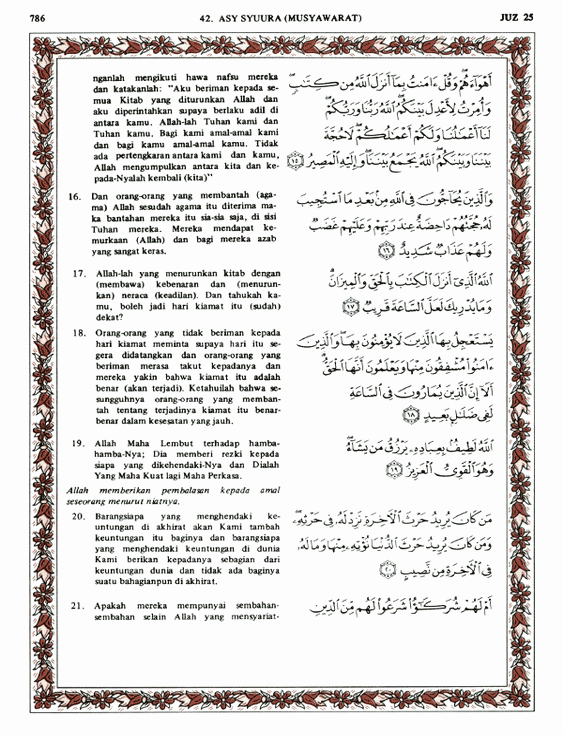 786
42. ASY SYUURA (MUSYAWARAT)
JUZ 25
nganlah mengikuti hawa nafsu mereka
dan katakanlah: "Aku beriman kepada se-
mua Kitab yang diturunkan Allah dan
aku diperintahkan supaya berlaku adil di
antara kamu. Allah-lah Tuhan kami dan
Tuhan kamu. Bagi kami amal-amal kami
dan bagi kamu amal-amal kamu. Tidak
ada pertengkaran antara kami dan kamu,
Allah mengumpulkan antara kita dan ke-
pada-Nyalah kembali (kita)"
16. Dan orang-orang yang membantah (aga-
ma) Allah sesudah agama itu diterima ma-
ka bantahan mereka itu sia-sia saja, di sisi
Tuhan mereka. Mereka mendapat ke-
murkaan (Allah) dan bagi mereka azab
yang sangat keras.
17. Allah-lah yang menurunkan kitab dengan
(membawa) kebenaran dan (menurun-
kan) neraca (keadilan). Dan tahukah ka-
mu, boleh jadi hari kiamat itu (sudah)
dekat?
18. Orang-orang yang tidak beriman kepada
hari kiamat meminta supaya hari itu se-
gera didatangkan dan orang-orang yang
beriman merasa takut kepadanya dan
mereka yakin bahwa kiamat itu adalah
benar (akan terjadi). Ketahuilah bahwa se-
sungguhnya orang-orang yang memban-
tah tentang terjadinya kiamat itu benar-
benar dalam kesesatan yang jauh.
19. Allah Maha Lembut terhadap hamba-
hamba-Nya; Dia memberi rezki kepada
siapa yang dikehendaki-Nya dan Dialah
Yang Maha Kuat lagi Maha Perkasa.
Allah memberikan pembalasan kepada amal
seseorang menurut niatnya.
20. Barangsiapa yang menghendaki ke-
untungan di akhirat akan Kami tambah
keuntungan itu baginya dan barangsiapa
yang menghendaki keuntungan di dunia
Kami berikan kepadanya sebagian dari
keuntungan dunia dan tidak ada baginya
suatu bahagianpun di akhirat.
21. Apakah mereka mempunyai sembahan-
sembahan selain Allah yang mensyariat-
أَهْوَاءَهُمْ وَقُلْ ءَامَنتُ بِمَا أَنزَلَ اللَّهُ مِن كِتَٰبٍ
وَأُمِرْتُ لِأَعْدِلَ بَيْنَكُمُ اللَّهُ رَبُّنَا وَرَبُّكُمْ
لَنَا أَعْمَٰلُنَا وَلَكُمْ أَعْمَٰلُكُمْ لَا حُجَّةَ
بَيْنَنَا وَبَيْنَكُمُ اللَّهُ يَجْمَعُ بَيْنَنَا وَإِلَيْهِ الْمَصِيرُ ١٥
وَالَّذِينَ يُحَاجُّونَ فِي اللَّهِ مِن بَعْدِ مَا اسْتُجِيبَ
لَهُ حُجَّتُهُمْ دَاحِضَةٌ عِندَ رَبِّهِمْ وَعَلَيْهِمْ غَضَبٌ
وَلَهُمْ عَذَابٌ شَدِيدٌ ١٦
اللَّهُ الَّذِي أَنزَلَ الْكِتَٰبَ بِالْحَقِّ وَالْمِيزَانَ
وَمَا يُدْرِيكَ لَعَلَّ السَّاعَةَ قَرِيبٌ ١٧
يَسْتَعْجِلُ بِهَا الَّذِينَ لَا يُؤْمِنُونَ بِهَا وَالَّذِينَ
ءَامَنُوا مُشْفِقُونَ مِنْهَا وَيَعْلَمُونَ أَنَّهَا الْحَقُّ
أَلَا إِنَّ الَّذِينَ يُمَارُونَ فِي السَّاعَةِ
لَفِي ضَلَٰلٍ بَعِيدٍ ١٨
اللَّهُ لَطِيفٌ بِعِبَادِهِ يَرْزُقُ مَن يَشَاءُ
وَهُوَ الْقَوِيُّ الْعَزِيزُ ١٩
مَن كَانَ يُرِيدُ حَرْثَ الْآخِرَةِ نَزِدْ لَهُ فِي حَرْثِهِ
وَمَن كَانَ يُرِيدُ حَرْثَ الدُّنْيَا نُؤْتِهِ مِنْهَا وَمَا لَهُ
فِي الْآخِرَةِ مِن نَّصِيبٍ ٢٠
أَمْ لَهُمْ شُرَكَٰؤُا شَرَعُوا لَهُم مِّنَ الدِّينِ